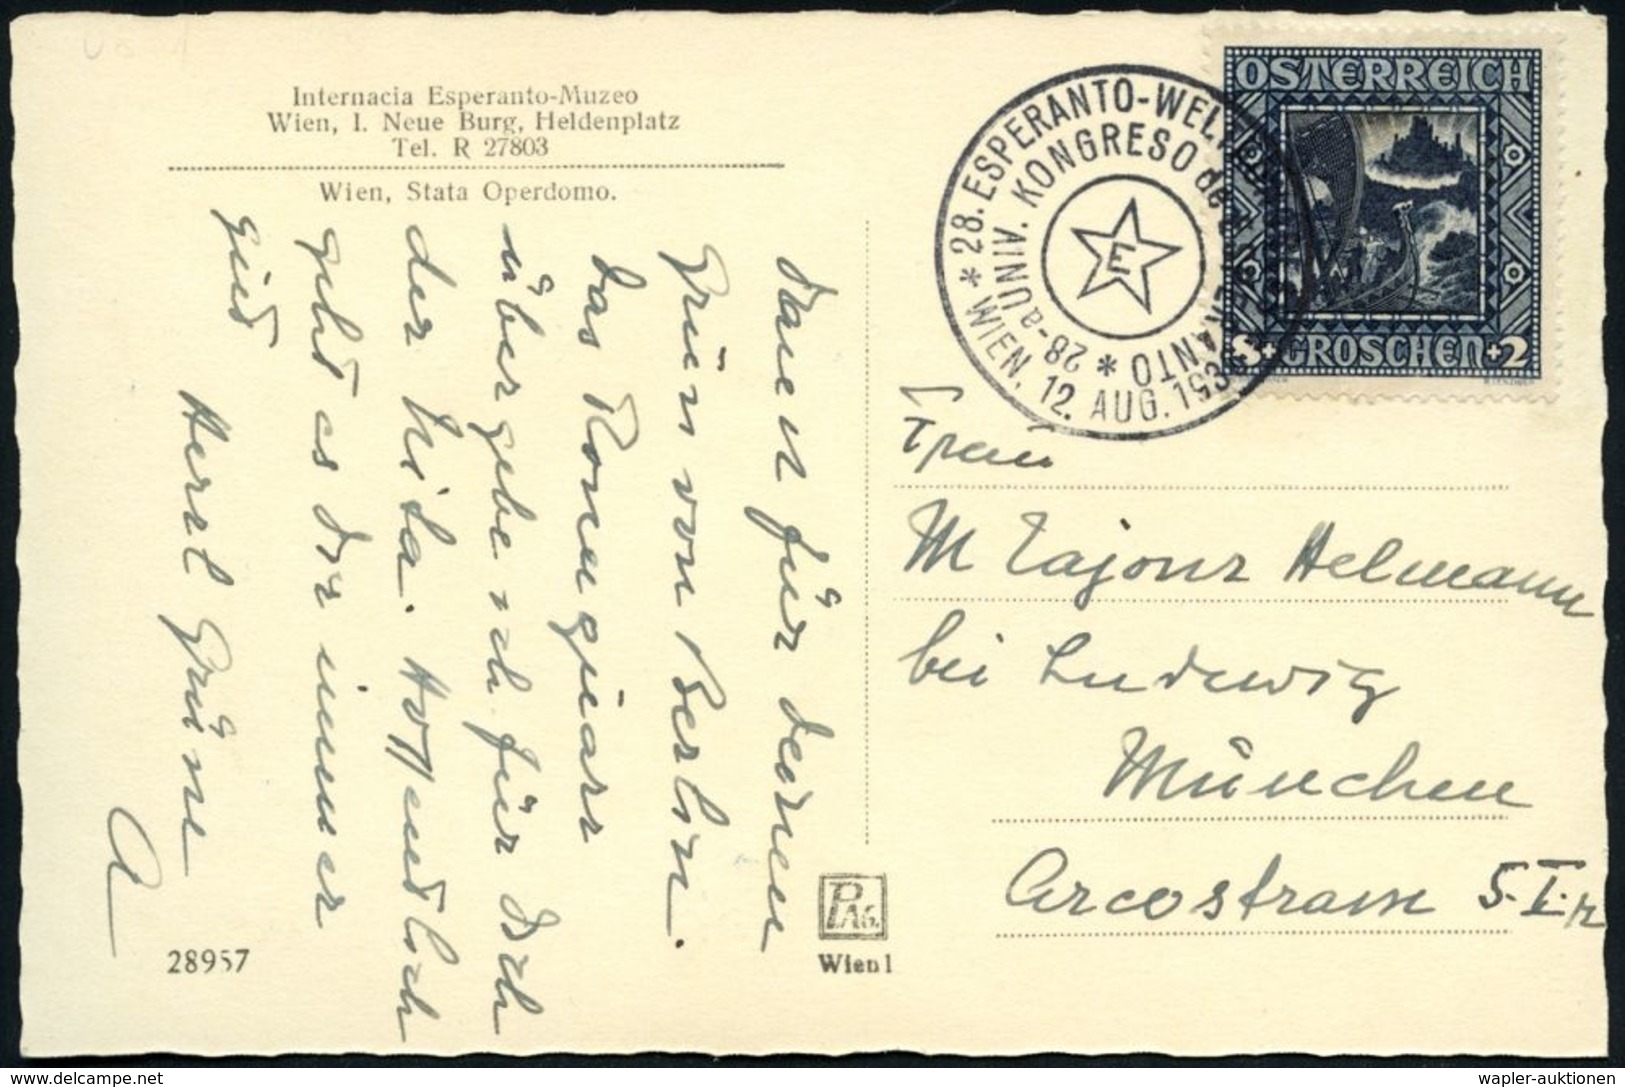 Internacia Esperanto-Muzeo
Wien, I. Neue Burg, Heldenplatz
Tel. R 27803
Wien, Stata Operdomo.
Dank für deinen
von Berlin.
Das
übergebe ich für Dich
der Hila. Hoffendlich
geht es Dir immer
gut
Herzl Grüsse
A
28957
PAG.
Wien 1
* 28. ESPERANTO-WELT
WIEN, 12. AUG. 1936
28-a UNIV. KONGRESO de ESPERANTO *
E
ÖSTERREICH
3+ GROSCHEN +2
Frau
M Helmann
bei Ludwig
München
Arcostrasse 5.I.
wapler-auktionen